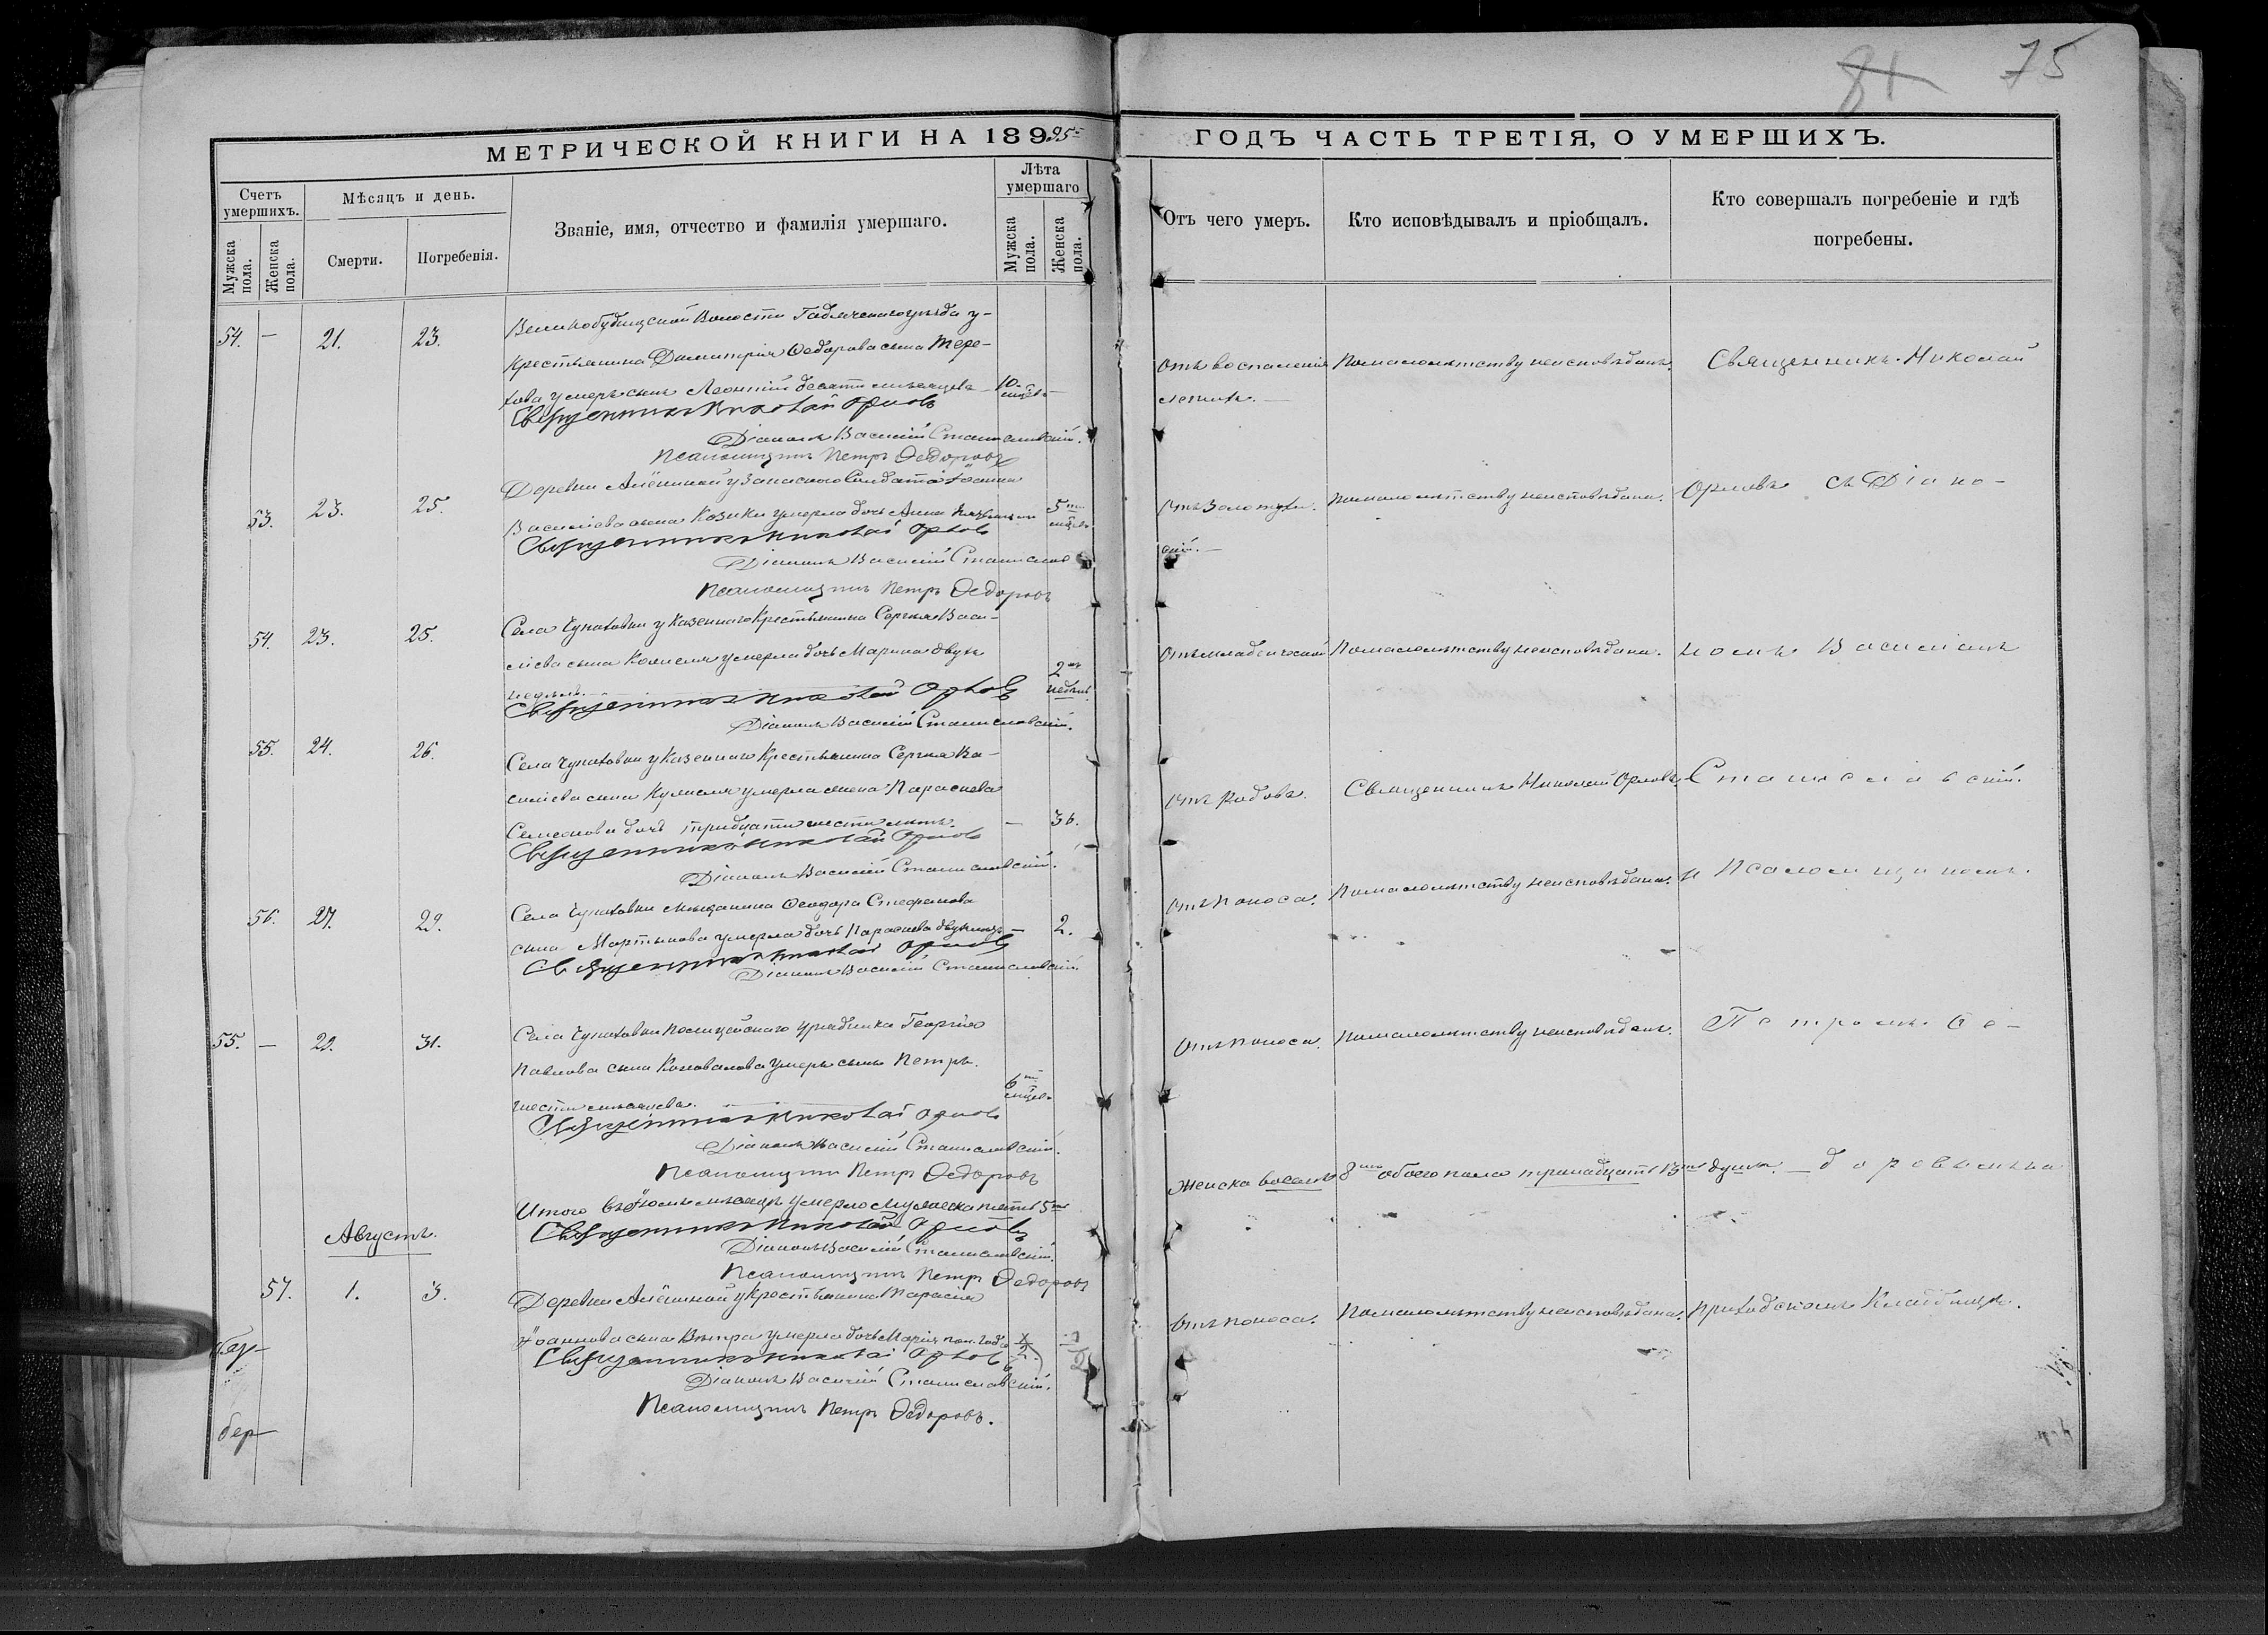 81 75
МЕТРИЧЕСКОЙ КНИГИ НА 18995 ГОДЪ ЧАСТЬ ТРЕТІЯ, О УМЕРШИХЪ.
Счетъ умершихъ.
Мужска пола.
Женска пола.
Мѣсяцъ и день.
Смерти.
Погребенія.
Званіе, имя, отчество и фамилія умершаго.
Лѣта умершаго
Мужска пола.
Женска пола.
Отъ чего умеръ.
Кто исповѣдывалъ и пріобщалъ.
Кто совершалъ погребеніе и гдѣ погребены.
54. — 21. 23.
Великобудищской Волости Гадячскаго уѣзда у-
крестьянина Димитрія Ѳедорова сына Тере-
хова умеръ сынъ Леонтій десяти мѣсяцевъ 10
Священникъ Николай Орловъ
Діаконъ Василій Станиславскій.
Псаломщикъ Петръ Ѳедоровъ
отъ воспаленія
По малолѣтству неисповѣданъ.
Священникъ Николай
53. 23. 25.
Деревни у запаснаго Солдата Іоанна
Василіева сына Козики умерла дочь Анна 5
Священникъ Николай Орловъ
Діаконъ Василій Станислав
Псаломщикъ Петръ Ѳедоровъ
Отъ Золотухи.
По малолѣтству неисповѣдана.
Орловъ съ Діако-
54. 23. 25.
Села Чупаховки у Казеннаго Крестьянина Сергія Васи-
ліева сына умерла дочь Марина двухъ
недѣль. 2
Священникъ Николай Орловъ
Діаконъ Василій Станиславскій.
Отъ младенческой
По малолѣтству неисповѣдана.
номъ Василіемъ
55. 24. 26.
Села Чупаховки у Казеннаго Крестьянина Сергія Ва-
силіева сына умерла жена Параскева
Семенова дочь тридцати шести лѣтъ. — 36.
Священникъ Николай Орловъ
Діаконъ Василій Станиславскій.
Отъ Родовъ.
Священникъ Николай Орловъ.
Станиславскій.
56. 27. 29.
Села Чупаховки Мѣщанина Ѳеодора Стефанова
сына Мартынова умерла дочь Параскева — 2.
Священникъ Николай Орловъ
Діаконъ Василій Станиславскій.
Отъ поноса.
По малолѣтству неисповѣдана.
и Псаломщикомъ.
55. — 29. 31.
Села Чупаховки Полицейскаго Урядника Георгія
Павлова сына Коновалова умеръ сынъ Петръ.
шести мѣсяцевъ. 6
Священникъ Николай Орловъ
Діаконъ Василій Станиславскій.
Псаломщикъ Петръ Ѳедоровъ
Отъ поноса.
По малолѣтству неисповѣданъ.
Петромъ Ѳе-
Итого въ Іюлѣ мѣсяцѣ умерло Мужеска пять 5
Женска восемь 8 обоего пола тринадцать 13 душъ.
доровымъ
Священникъ Николай Орловъ
Діаконъ Василій Станиславскій.
Псаломщикъ Петръ Ѳедоровъ
Августъ.
57. 1. 3.
Деревни у Крестьянина Тарасія
Іоаннова сына Вѣтра умерла дочь Марія пол. года
Священникъ Николай Орловъ
Діаконъ Василій Станиславскій.
Псаломщикъ Петръ Ѳедоровъ.
Отъ поноса.
По малолѣтству неисповѣдана.
Приходскомъ Кладбищѣ.